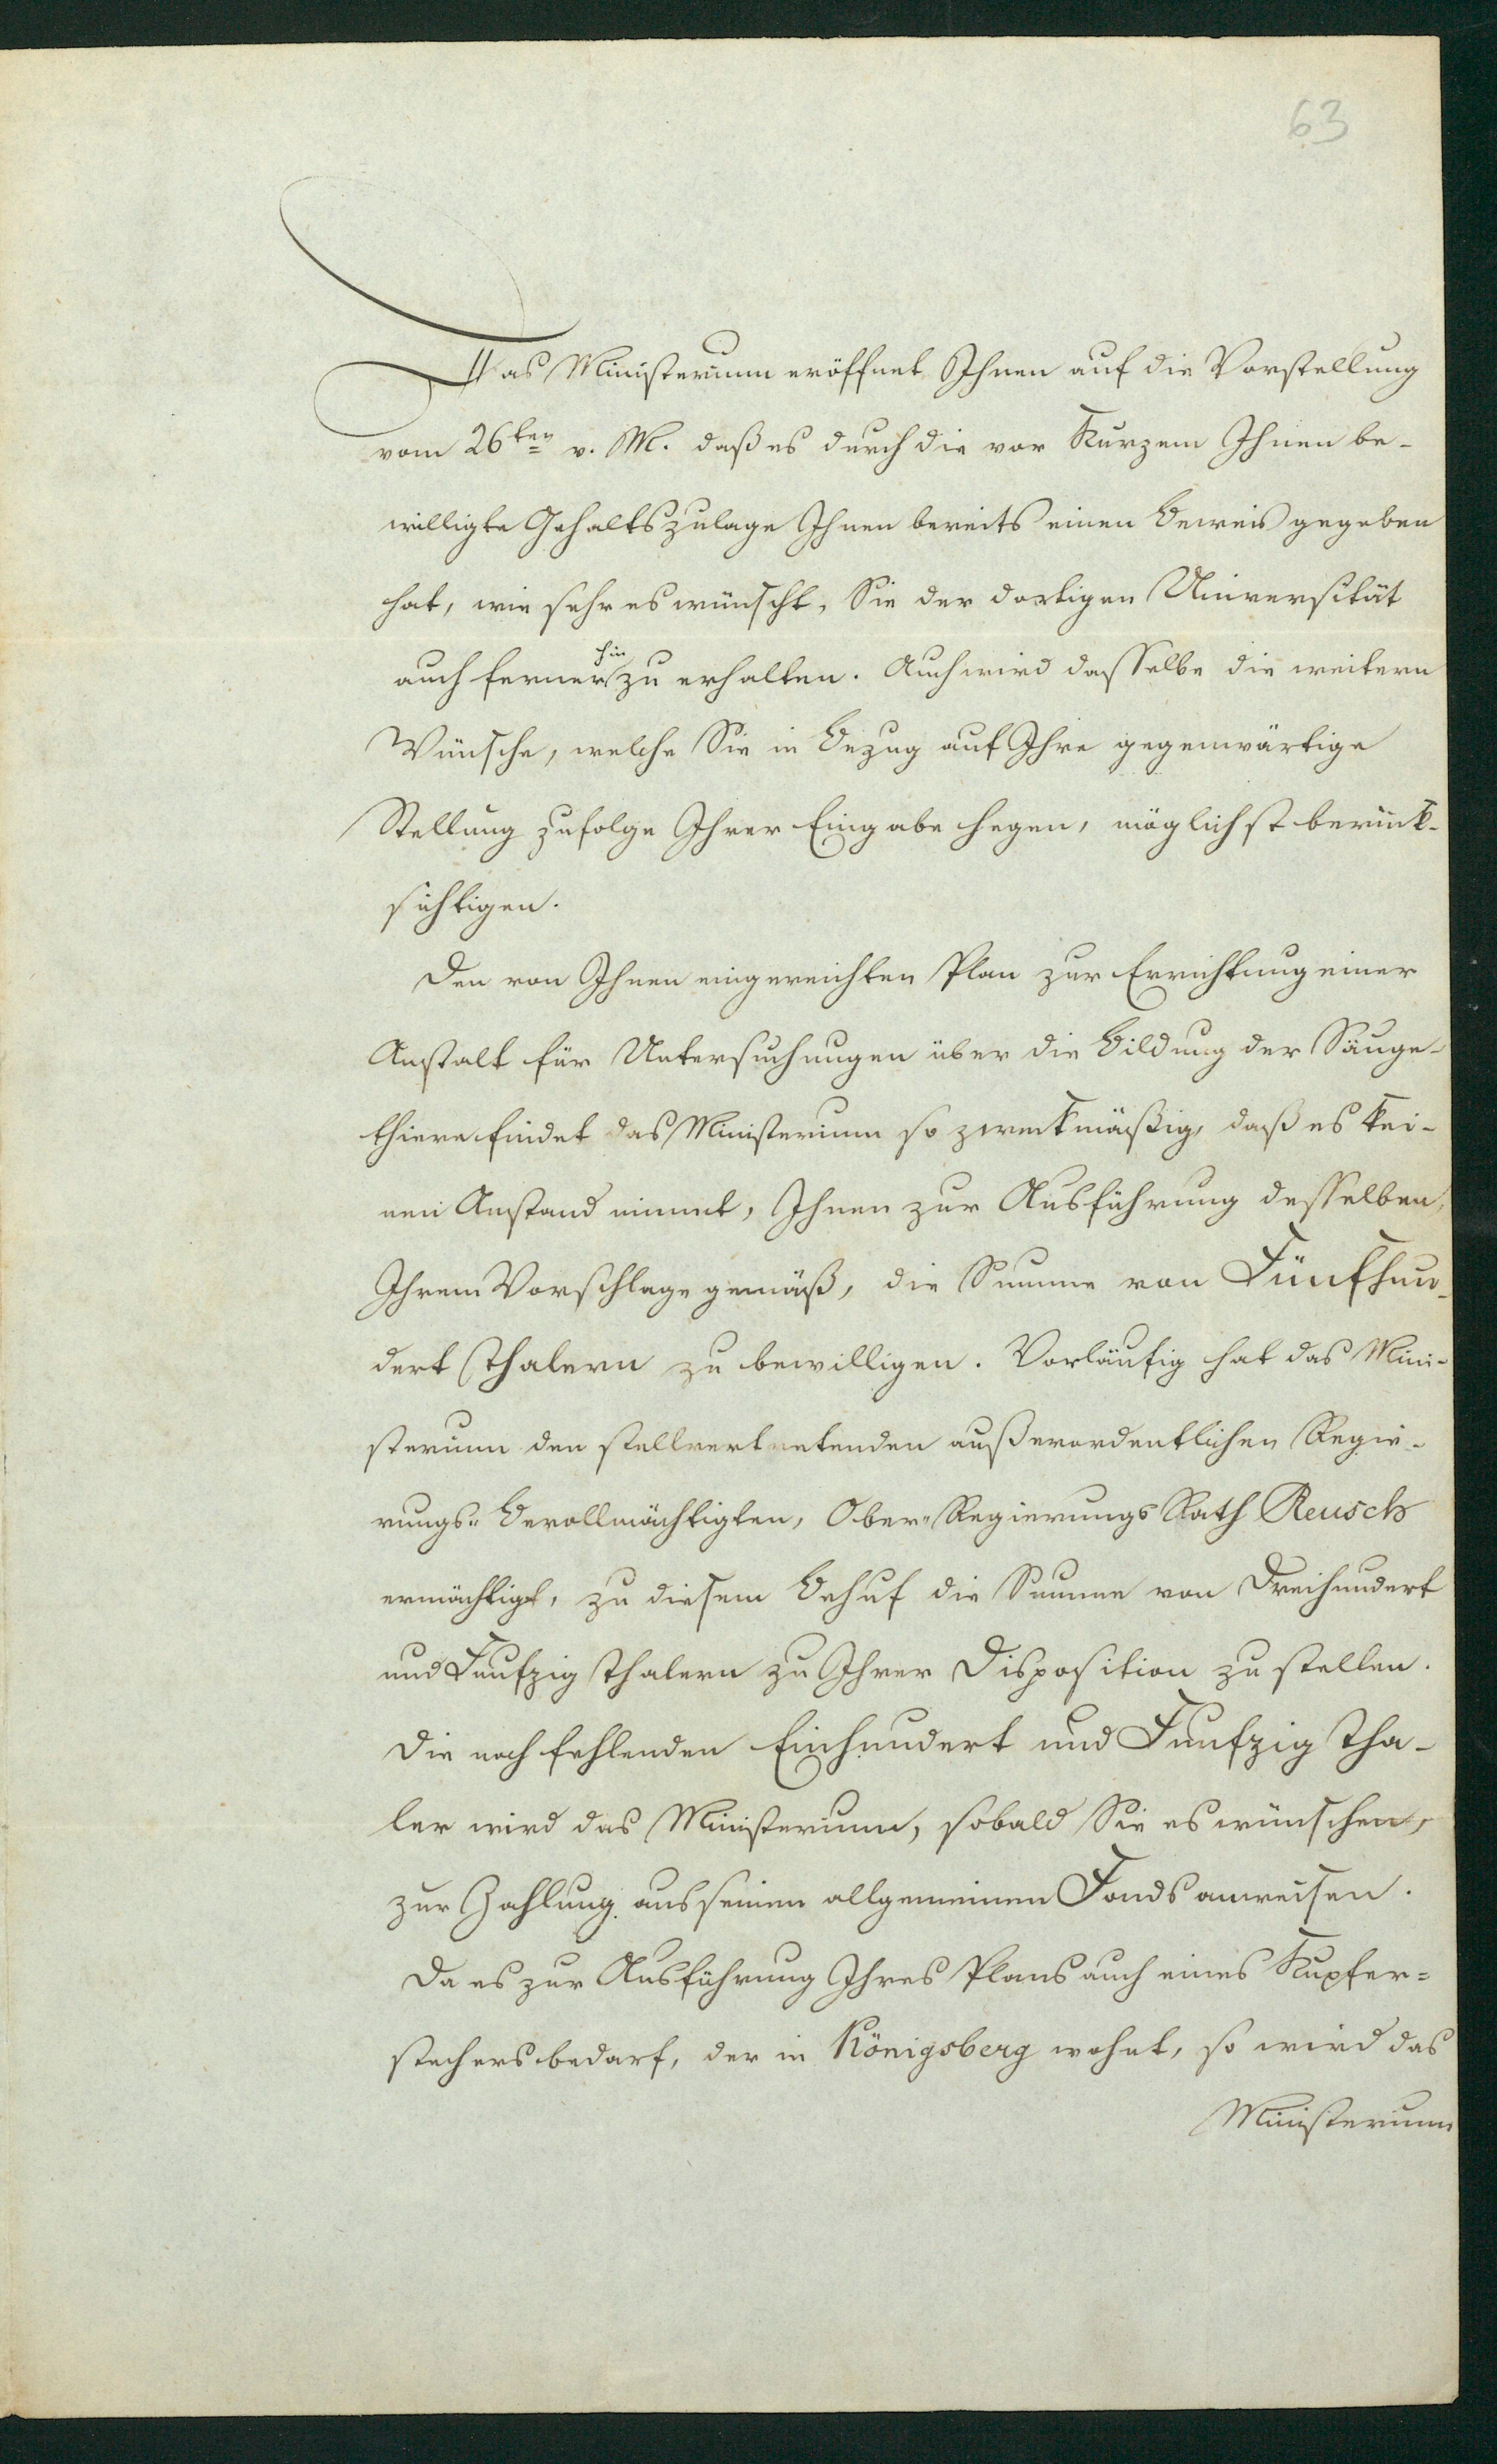 63
Das Ministerium eröffnet Ihnen auf die Vorstellung
vom 26ten v. M. daß es durch die vor Kurzem Ihnen be-
willigte Gehaltszulage Ihnen bereits einen Beweis gegeben
hat, wie sehr es wünscht, Sie der dortigen Universität
auch fernerhin zu erhalten. Auch wird dasselbe die weitern
Wünsche, welche Sie in Bezug auf Ihre gegenwärtige
Stellung zufolge Ihrer Eingabe hegen, möglichst berück-
sichtigen.
Den von Ihnen eingereichten Plan zur Errichtung einer
Anstalt für Untersuchungen über die Bildung der Säuge-
thiere findet das Ministerium so zweckmäßig, daß es kei-
nen Anstand nimmt, Ihnen zur Ausführung desselben,
Ihrem Vorschlage gemäß, die Summe von Fünfhun-
dert Thalern zu bewilligen. Vorläufig hat das Mini-
sterium den stellvertretenden außerordentlichen Regie-
rungs-Bevollmächtigten, Ober-Regierungs Rath Reusch
ermächtigt, zu diesem Behuf die Summe von Dreihundert
und Funfzig Thalern zu Ihrer Disposition zu stellen.
Die noch fehlenden Einhundert und Funfzig Tha-
ler wird das Ministerium, sobald Sie es wünschen,
zur Zahlung aus seinem allgemeinen Fonds anweisen.
Da es zur Ausführung Ihres Plans auch eines Kupfer-
stechers bedarf, der in Königsberg wohnt, so wird das
Ministerium